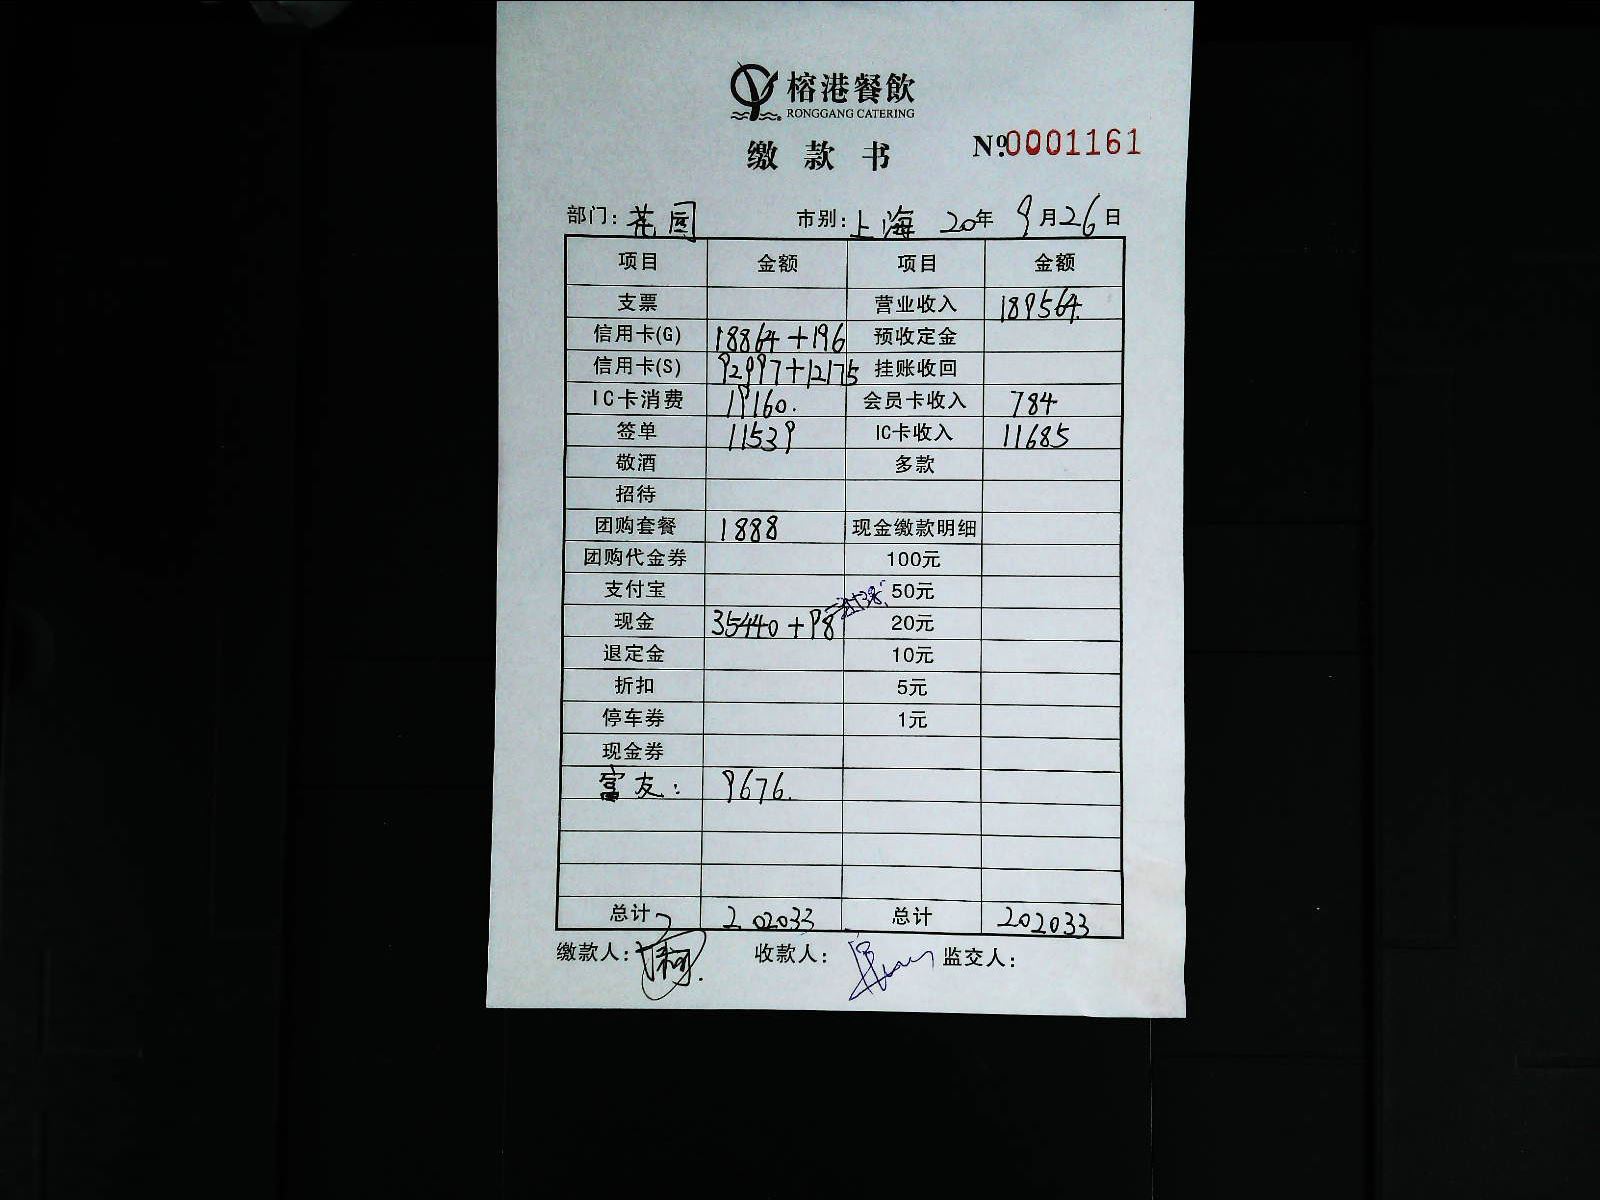 榕港餐飲
RONGGANG CATERING
缴款书 Nº.0001161
部门: 花园 市别: 上海 20年 9月26日
项目 金额 项目 金额
支票 营业收入 189564.
信用卡(G) 18864+196 预收定金
信用卡(S) 92997+12175 挂账收回
IC卡消费 19160. 会员卡收入 784
签单 11539 IC卡收入 11685
敬酒 多款
招待
团购套餐 1888 现金缴款明细
团购代金券 100元
支付宝 50元
现金 35440+98 20元
退定金 10元
折扣 5元
停车券 1元
现金券
富友: 9676.
总计 202033 总计 202033
缴款人: 收款人: 监交人: